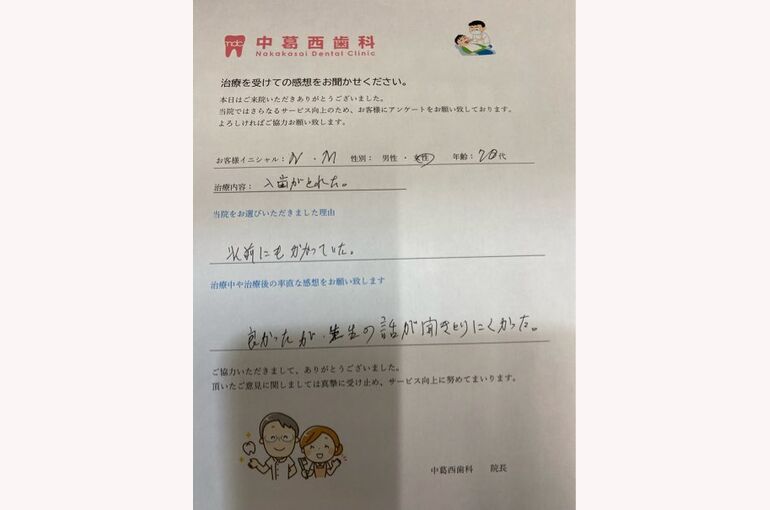 mdc 中葛西歯科
Nakakasai Dental Clinic
治療を受けての感想をお聞かせください。
本日はご来院いただきありがとうございました。
当院ではさらなるサービス向上のため、お客様にアンケートをお願い致しております。
よろしければご協力お願い致します。
お客様イニシャル： N . M 性別： 男性 ・ 女性 年齢： 70代
治療内容： 入歯がとれた。
当院をお選びいただきました理由
以前にもかかっていた。
治療中や治療後の率直な感想をお願い致します
良かったが、先生の話が聞きとりにくかった。
ご協力いただきまして、ありがとうございました。
頂いたご意見に関しましては真摯に受け止め、サービス向上に努めてまいります。
中葛西歯科 院長